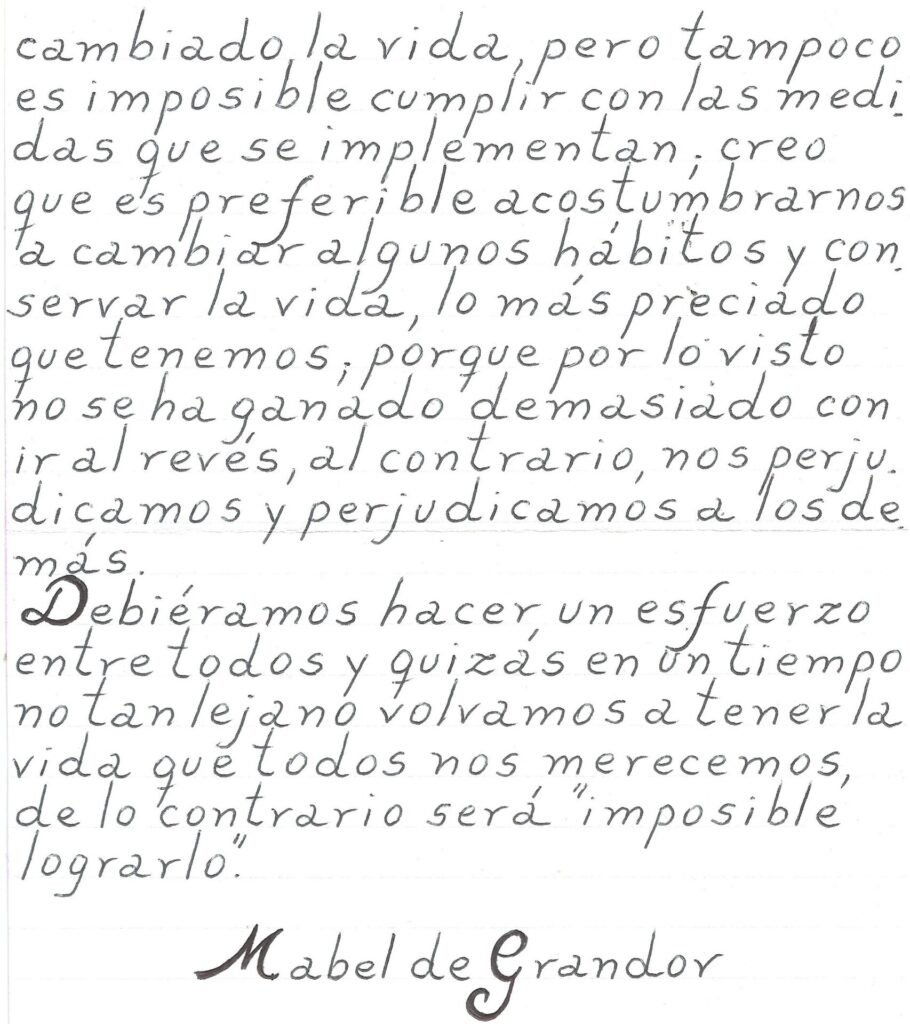 cambiado la vida, pero tampoco
es imposible cumplir con las medi_
das que se implementan; creo
que es preferible acostumbrarnos
a cambiar algunos hábitos y con_
servar la vida, lo más preciado
que tenemos; porque por lo visto
no se ha ganado demasiado con
ir al revés, al contrario, nos perju_
dicamos y perjudicamos a los de_
más.
Debiéramos hacer un esfuerzo
entre todos y quizás en un tiempo
no tan lejano volvamos a tener la
vida que todos nos merecemos,
de lo contrario será "imposible
lograrlo".
Mabel de Grandor